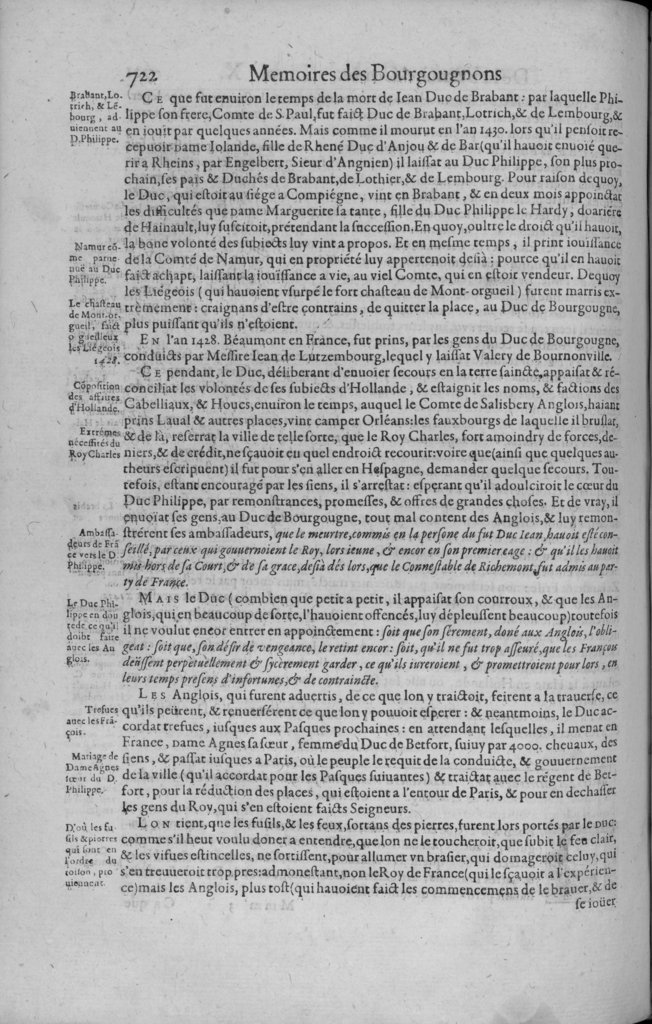 722 Memoires des Bourgougnons
Brabant, Lo-
trich, & Lé-
bourg, ad-
uiennent au
D. Philippe.
CE que fut enuiron le temps de la mort de Iean Duc de Brabant : par laquelle Phi-
lippe son frere, Comte de S. Paul, fut faict Duc de Brabant, Lotrich, & de Lembourg, &
en iouit par quelques années. Mais comme il mourut en l'an 1430. lors qu'il pensoit re-
cepuoir Dame Iolande, fille de Rhené Duc d'Anjou & de Bar (qu'il hauoit enuoié que-
rir a Rheins, par Engelbert, Sieur d'Angnien) il laissat au Duc Philippe, son plus pro-
chain, ses païs & Duchés de Brabant, de Lothier, & de Lembourg. Pour raison dequoy,
le Duc, qui estoit au siége a Compiégne, vint en Brabant, & en deux mois appoinctat
les difficultés que Dame Marguerite sa tante, fille du Duc Philippe le Hardy, doariére
de Hainault, luy suscitoit, prétendant la succession. En quoy, oultre le droict qu'il hauoit,
la bone volonté des subiects luy vint a propos. Et en mesme temps, il print iouissance
de la Comté de Namur, qui en propriété luy appertenoit desià : pource qu'il en hauoit
faict achapt, laissant la iouïssance a vie, au viel Comte, qui en estoit vendeur. Dequoy
les Liégeois (qui hauoient vsurpé le fort chasteau de Mont-orgueil) furent marris ex-
trèmement : craignans d'estre contrains, de quitter la place, au Duc de Bourgougne,
plus puissant qu'ils n'estoient.
Namur cō-
me parue-
nue au Duc
Philippe.
Le chasteau
de Mont-or-
gueil, faict
o gueilleux
les Liégeois
1428.
EN l'an 1428. Béaumont en France, fut prins, par les gens du Duc de Bourgougne,
conduicts par Messire Iean de Lutzembourg, lequel y laissat Valery de Bournonville.
CE pendant, le Duc, déliberant d'enuoier secours en la terre saincte, appaisat & ré-
conciliat les volontés de ses subiects d'Hollande, & estaignit les noms, & factions des
Cabelliaux, & Houcs, enuiron le temps, auquel le Comte de Salisbery Anglois, haiant
prins Laual & autres places, vint camper Orléans: les fauxbourgs de laquelle il bruslat,
& de là, reserrat la ville de telle sorte, que le Roy Charles, fort amoindry de forces, de-
niers, & de crédit, ne sçauoit en quel endroict recourir: voire que (ainsi que quelques au-
theurs escripuent) il fut pour s'en aller en Hespagne, demander quelque secours. Tou-
tefois, estant encouragé par les siens, il s'arrestat : esperant qu'il adoulciroit le cœur du
Duc Philippe, par remonstrances, promesses, & offres de grandes choses. Et de vray, il
enuoïat ses gens, au Duc de Bourgougne, tout mal content des Anglois, & luy remon-
strérent ses ambassadeurs, que le meurtre, commis en la persone du fut Duc Iean, hauoit esté con-
seillé, par ceux qui gouuernoient le Roy, lors ieune, & encor en son premier eage : & qu'il les hauoit
mis hors de sa Court, & de sa grace, desià dés lors, que le Connestable de Richemont, fut admis au par-
ty de France.
Cōposition
des affaires
d'Hollande.
Extrémes
nécessités du
Roy Charles
Ambassa-
deurs de Frā
ce vers le D
Philippe.
MAIS le Duc (combien que petit a petit, il appaisat son courroux, & que les An-
glois, qui en beaucoup de sorte, l'hauoient offencés, luy dépleussent beaucoup) toutefois
il ne voulut encor entrer en appoinctement : soit que son sèrement, doné aux Anglois, l'obli-
geat : soit que, son désir de vengeance, le retint encor : soit, qu'il ne fut trop asseuré, que les François
deüssent perpetuellement & sycèrement garder, ce qu'ils iureroient, & promettroient pour lors, en
leurs temps presens d'infortunes, & de contraincte.
Le Duc Phi-
lippe en dou
te de ce qu'il
doibt faire
auec les An
glois.
LES Anglois, qui furent aduertis, de ce que lon y traictoit, feirent a la trauerse, ce
qu'ils peürent, & renuersérent ce que lon y pouuoit esperer : & neantmoins, le Duc ac-
cordat trefues, iusques aux Pasques prochaines : en attendant lesquelles, il menat en
France, Dame Agnes sa sœur, femme du Duc de Betfort, suiuy par 4000. cheuaux, des
siens, & passat iusques a Paris, où le peuple le requit de la conduicte, & gouuernement
de la ville (qu'il accordat pour les Pasques suiuantes) & traictat auec le régent de Bet-
fort, pour la réduction des places, qui estoient a l'entour de Paris, & pour en dechasser
les gens du Roy, qui s'en estoient faicts Seigneurs.
Trefues
auec les Frā-
çois.
Mariage de
Dame Agnes
sœur du D.
Philippe.
LON tient, que les fusils, & les feux, sortans des pierres, furent lors portés par le Duc:
comme s'il heut voulu doner a entendre, que lon ne le toucheroit, que subit le feu clair,
& les vifues estincelles, ne sortissent, pour allumer vn brasier, qui domageroit celuy, qui
s'en treuueroit trop pres: admonestant, non le Roy de France (qui le sçauoit a l'expérien-
ce) mais les Anglois, plus tost (qui hauoient faict les commencemens de le brauer, & de
D'où les fu-
sils & pierres
qui sont en
l'ordre du
toison, pro
uiennent.
se ioüer